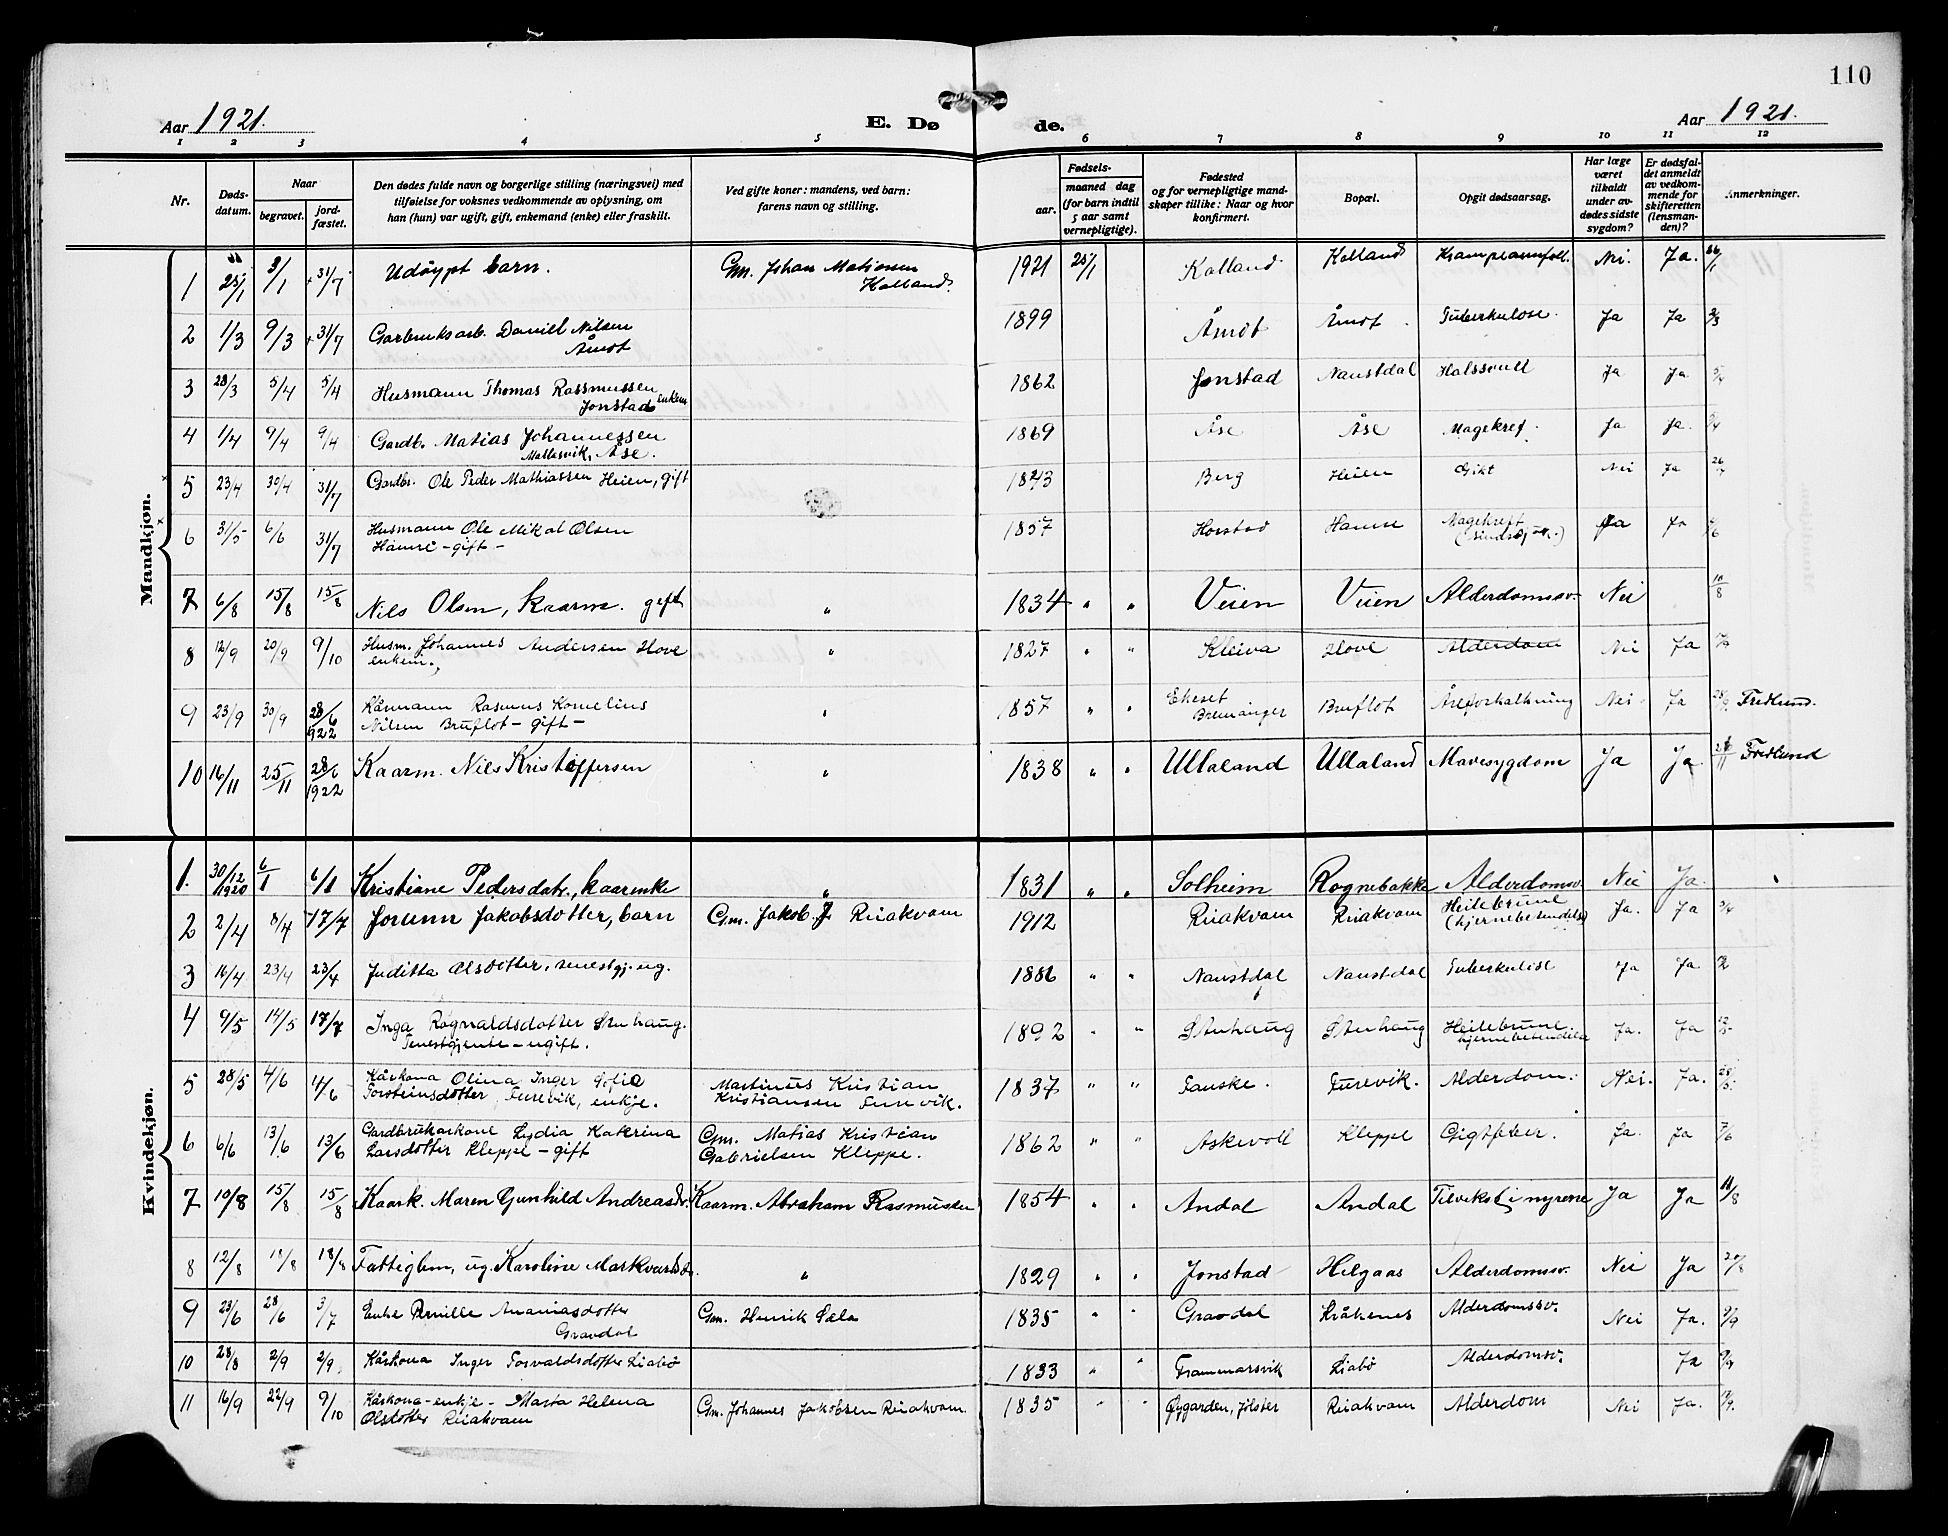 110
Aar 1921.
E. Døde.
Aar 1921.
1 2 3 4 5 6 7 8 9 10 11 12
Nr.
Døds-
datum.
Naar
begravet.
jord-
fæstet.
Den dødes fulde navn og borgerlige stilling (næringsvei) med
tilføielse for voksnes vedkommende av oplysning, om
han (hun) var ugift, gift, enkemand (enke) eller fraskilt.
Ved gifte koner: mandens, ved barn:
farens navn og stilling.
Fødsels-
aar.
maaned dag
(for barn indtil
5 aar samt
vernepligtige).
Fødested
og for vernepligtige mand-
skaper tillike: Naar og hvor
konfirmert.
Bopæl.
Opgit dødsaarsag.
Har læge
været
tilkaldt
under av-
dødes sidste
sygdom?
Er dødsfal-
det anmeldt
av vedkom-
mende for
skifteretten
(lensman-
den)?
Anmerkninger.
Mandkjøn.
1 25/1 3/1 31/7 Udøypt barn. Gm. Johan Matiassen 1921 25/1 Kalland Kalland Krampeannfall. Nei. Ja. 26/1
Kalland.
2 1/3 9/3 31/7 Garbruksarb. Daniel Nilsen 1899 Åmot Åmot Tuberkulose. Ja Ja
Åmot
3 28/3 5/4 5/4 Husmann Thomas Rassmussen 1862 Jonstad Naustdal Halssvull Ja Ja 5/4
Jonstad enkem
4 1/4 9/4 9/4 Gardb. Matias Johannessen 1869 Åse Åse Magekref. Ja Ja.
Åse.
5 23/4 30/4 31/7 Gardbr. Ole Peder Mathiassen Heien, gift 1843 Berg Heien Gikt Nei Ja
6 31/5 6/6 31/7 Husmann Ole Mikal Olsen 1857 Horstad Hamre Magekreft Ja Ja
Hamre - gift -
7 6/8 15/8 15/8 Nils Olsen, kaarm. gift „ 1834 „ „ Veien Veien Alderdomssv. Nei 10/8
8 12/9 20/9 9/10 Husm. Johannes Andersen Hove „ 1827 „ „ Kleiva Hove Alderdom Nei Ja
enkem.,
9 23/9 30/9 28/6 1922 Kårmann Rasmus Kornelius „ 1857 „ „ Ekeset Bruflot Åreforkalkning Nei Ja 28/9 Fredlund.
Nilsen Bruflot - gift - Bremanger
10 16/11 25/11 28/6 1922 Kaarm. Nils Kristoffersen „ 1838 „ „ Ullaland Ullaland Mavesygdom Ja Ja Fredlund
Kvindekjøn.
1. 30/12 1920 6/1 6/1 Kristiane Pedersdatr., kaarenke „ 1831 „ „ Solheim Rognebakke Alderdomssv. Nei Ja.
2 2/4 8/4 17/7 Jorunn Jakobsdotter, barn Gm. Jakob J Riiakvam 1912 Riiakvam Riiakvam Heilebrune Ja. Ja
(hjernebetendelse)
3 16/4 23/4 23/4 Juditta Olsdotter, tenestgj. ug. 1886 „ „ Naustdal Naustdal Tuberkulose Ja Ja
4 9/5 14/5 17/7 Inga Rognaldsdotter Stenhaug. 1892 „ „ Stenhaug Stenhaug Heilebrune Ja. Ja
Tenestgjente - ugift. hjernebetendelse
5 28/5 4/6 4/6 Kårkona Olina Inger Sofie Martinus Kristian 1837 „ „ Fauske. Furevik. Alderdom. Nei. Ja. 28/5
Torsteinsdotter Furevik, enkje. Kristiansen Furevik.
6 6/6 13/6 13/6 Gardbrukarkone Lydia Katrina Gm. Matias Kristian 1862 „ „ Askevoll Kleppe Gigtfeber. Ja. Ja 7/6
Larsdotter Kleppe - gift Gabrielsen Kleppe.
7 10/8 15/8 15/8 Kaark. Maren Gunhild Andreasdr. Kaarm. Abraham Rasmussen 1854 „ „ Andal Andal Tilvekst i nyrene Ja Ja 11/8
8 12/8 18/8 18/8 Fattiglem, ug. Karoline Markvardsdr. „ 1829 „ „ Jonstad Helgaas Alderdomssv. Nei Ja 20/8
9 23/6 28/6 3/7 Enke Pernille Ananiasdotter Gm. Henrik Sæla 1835 „ „ Gravdal Kråkenes Alderdomssv. Nei Ja. 9/9
Gravdal
10 28/8 2/9 2/9. Kårkona Inger Torvaldsdotter Liabø 1833 „ „ Frammarsvik Liabø Alderdomsv. Ja
11 16/9 22/9 9/10 Kårkona-enkje - Marta Helena Gm. Johannes Jakobsen Riiakvam. 1835 „ „ Øygarden, Jölster Riiakvam Alderdom Nei Ja.
Olsdotter Riiakvam